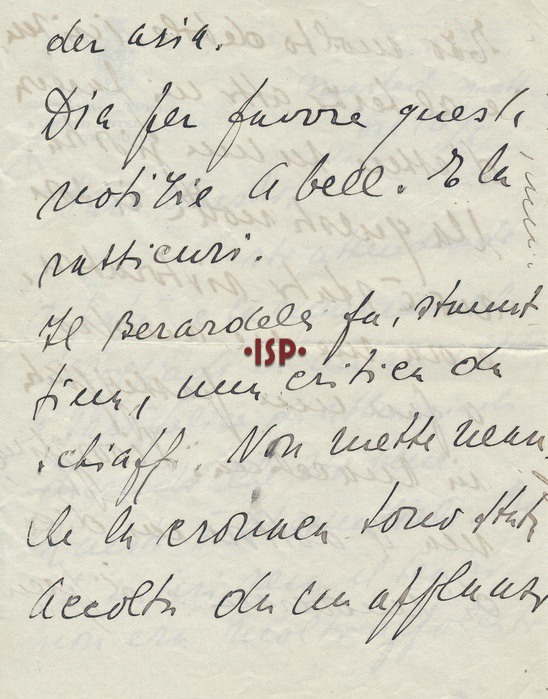 der aria.
Dia per favore queste
notizie a bell. E la
rassicuri.
Il Berardelli fa, stamat
tina, una critica da
schiaffi. Non mette nean
che la cronaca. Sono stata
accolta da un applauso
ISP